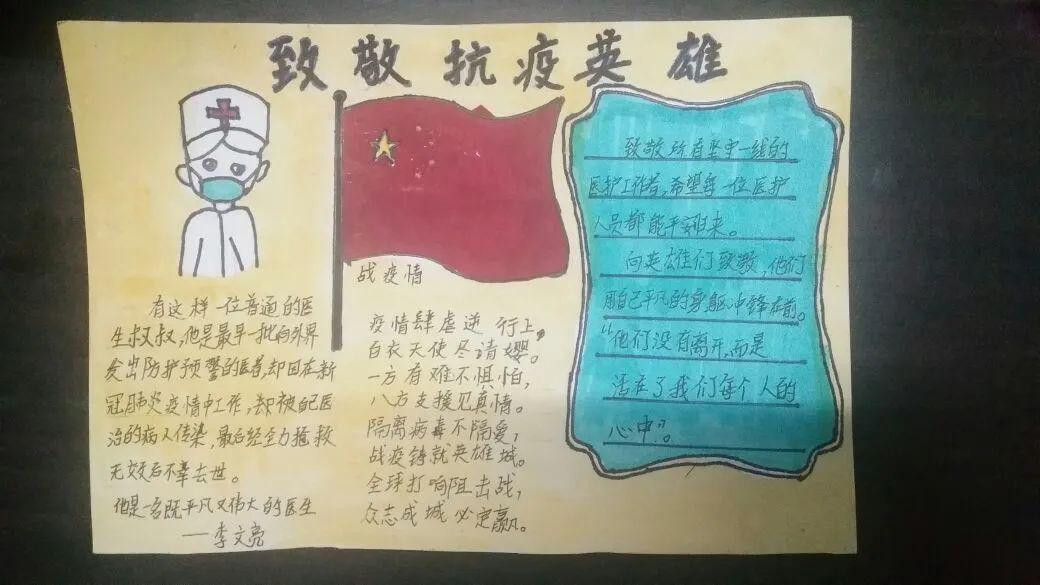 致敬抗疫英雄
有这样一位普通的医
生叔叔,他是最早一批向外界
发出防护预警的医者,却因在新
冠肺炎疫情中工作,却被自己医
治的病人传染,最后经全力抢救
无效后不幸去世。
他是一名既平凡又伟大的医生
——李文亮
战疫情
疫情肆虐逆行上,
白衣天使尽请嬰。
一方有难不惧怕,
八方支援见真情。
隔离病毒不隔爱,
战疫铸就英雄城。
全球打响阻击战,
众志成城必定赢。
致敬所有坚守一线的
医护工作者,希望每一位医护
人员都能平安归来。
向英雄们致敬,他们
用自己平凡的身躯冲锋在前。
“他们没有离开,而是
活在了我们每个人的
心中”。